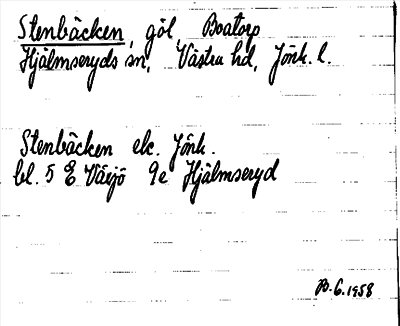 Stenbäcken, göl, Boatorp
Hjälmseryds sn, Västra hd, Jönk. l.
Stenbäcken ek. Jönk.
bl. 5 E Växjö 9e Hjälmseryd
B. G. 1958